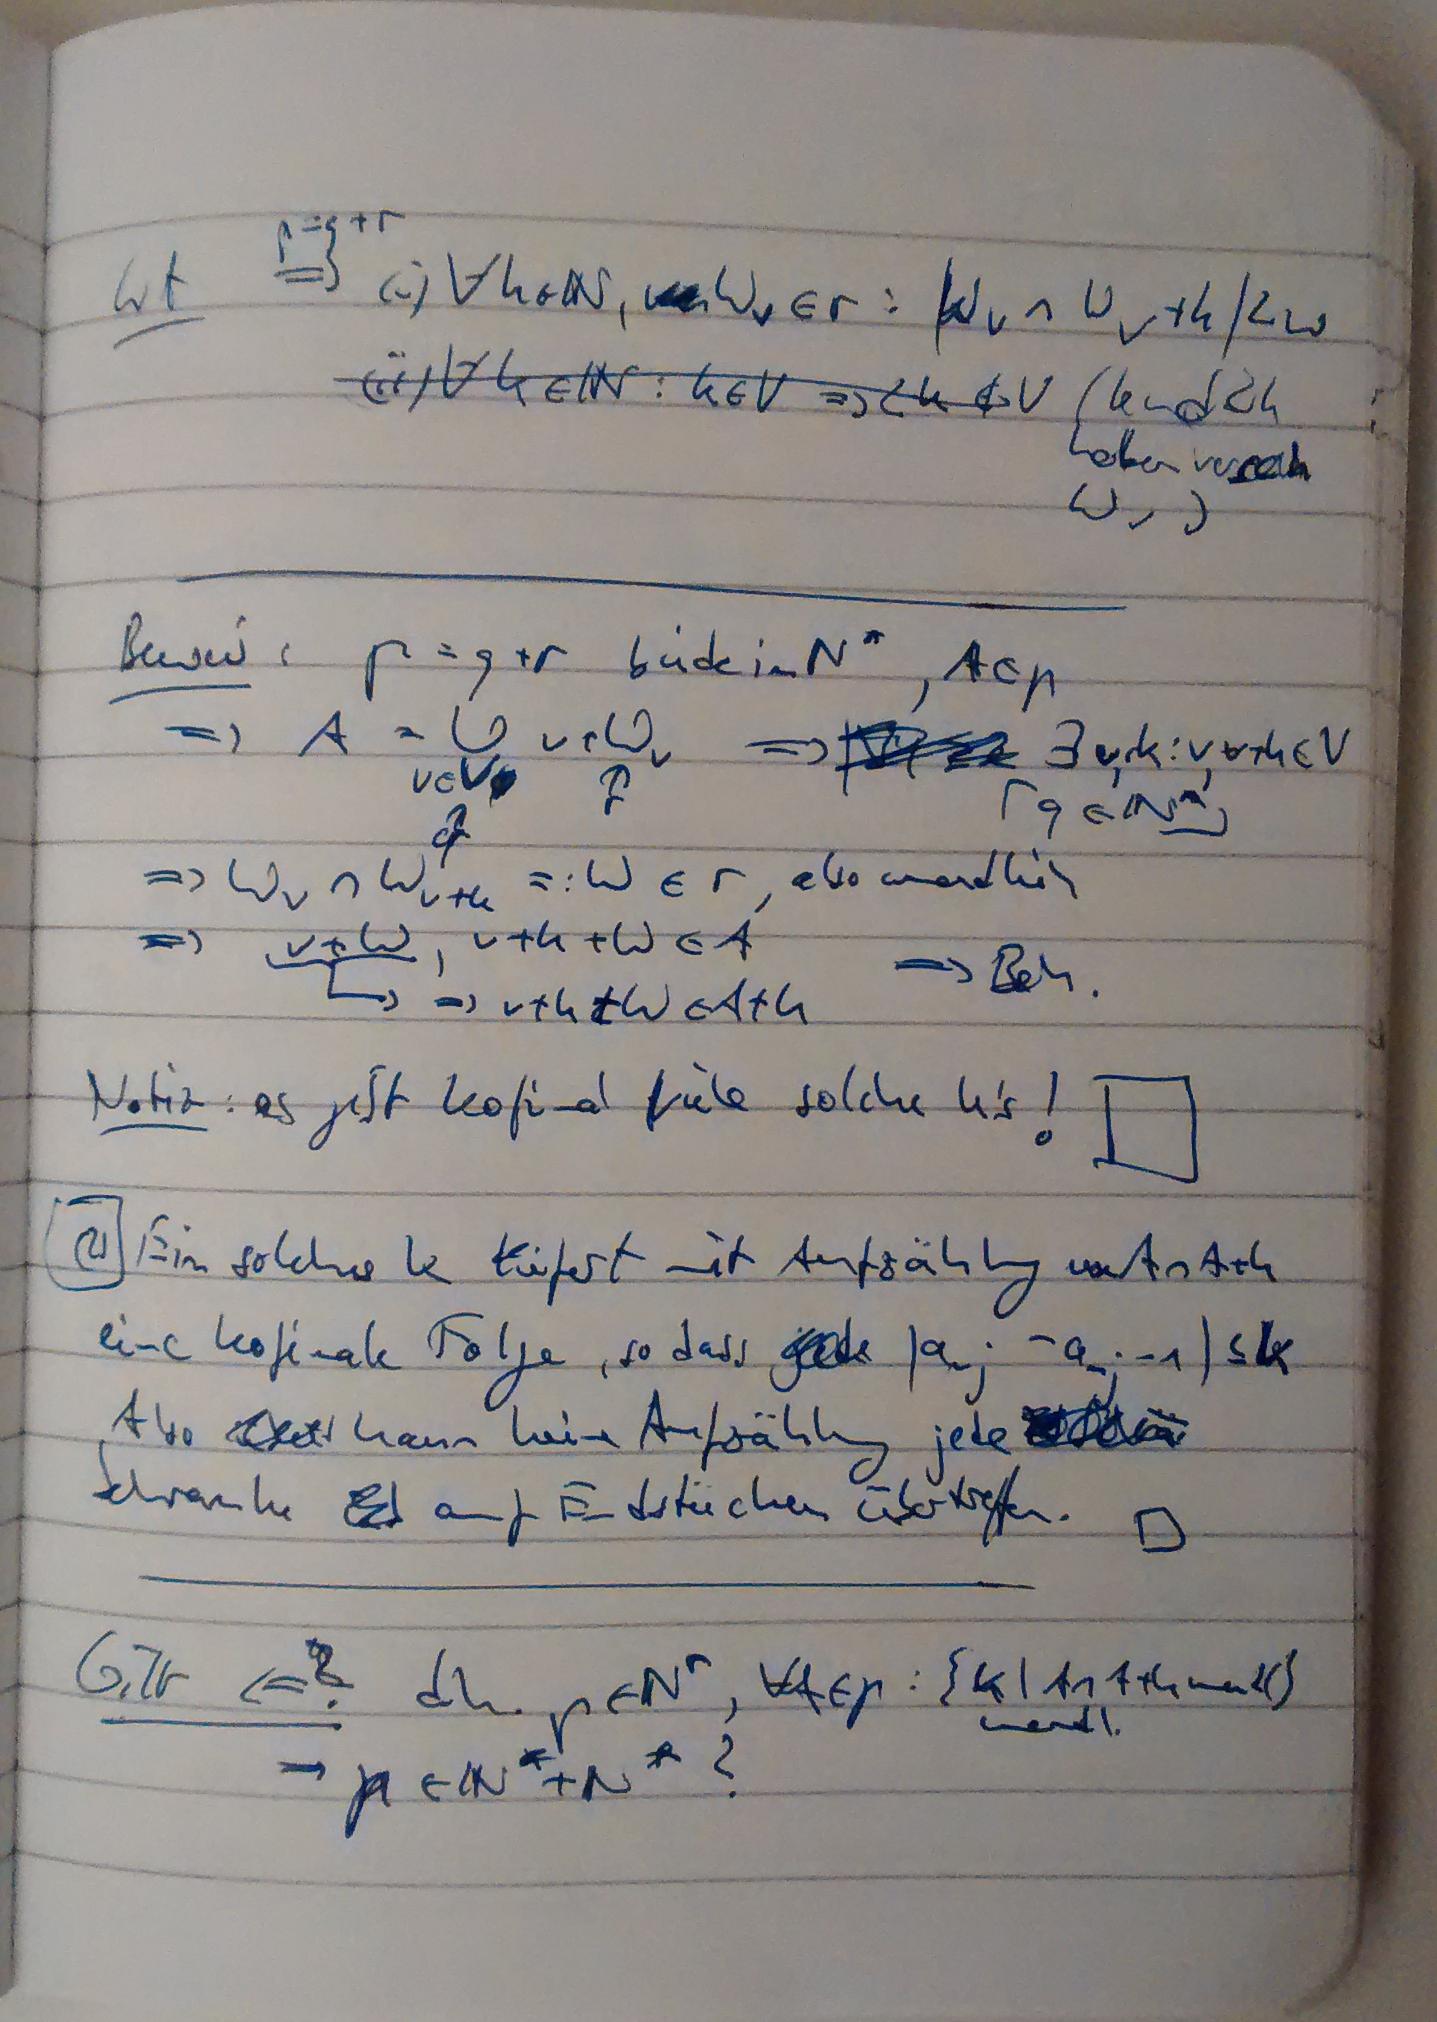 p=q+r
⟹ (i) ∀k∈ℕ, W_v ∈ r : |W_v ∩ W_v+k| < ω
(ii) ∀k∈ℕ : k∈V ⟹ 2k ∉ V (k und 2k
haben
W_v)
Beweis: p = q+r beide in N*, A∈p
⟹ A = ⋃_{v∈V} v+W_v ⟹ ∃v,k : v, v+k∈V
q r ⌈q ∈ ℕ*⌋
⟹ W_v ∩ W_{v+k} =: W ∈ r, also unendlich
⟹ v+W, v+k+W ∈ A ⟹ Beh.
⟹ v+k+W ∈ A+k
Notiz: es gibt kofinal viele solche k's! □
Ein solches k liefert mit Aufzählung von A∩A+k
eine kofinale Folge, so dass |a_{n_j} - a_{n_j-1}| ≤ k
Also kann keine Aufzählung jede
Schranke auf Endstücken übertreffen. □
Gilt ⟸? dh. p∈N*, ∀A∈p : {k | A∩A+k unendl}
unendl.
→ p ∈ ℕ*+N* ?